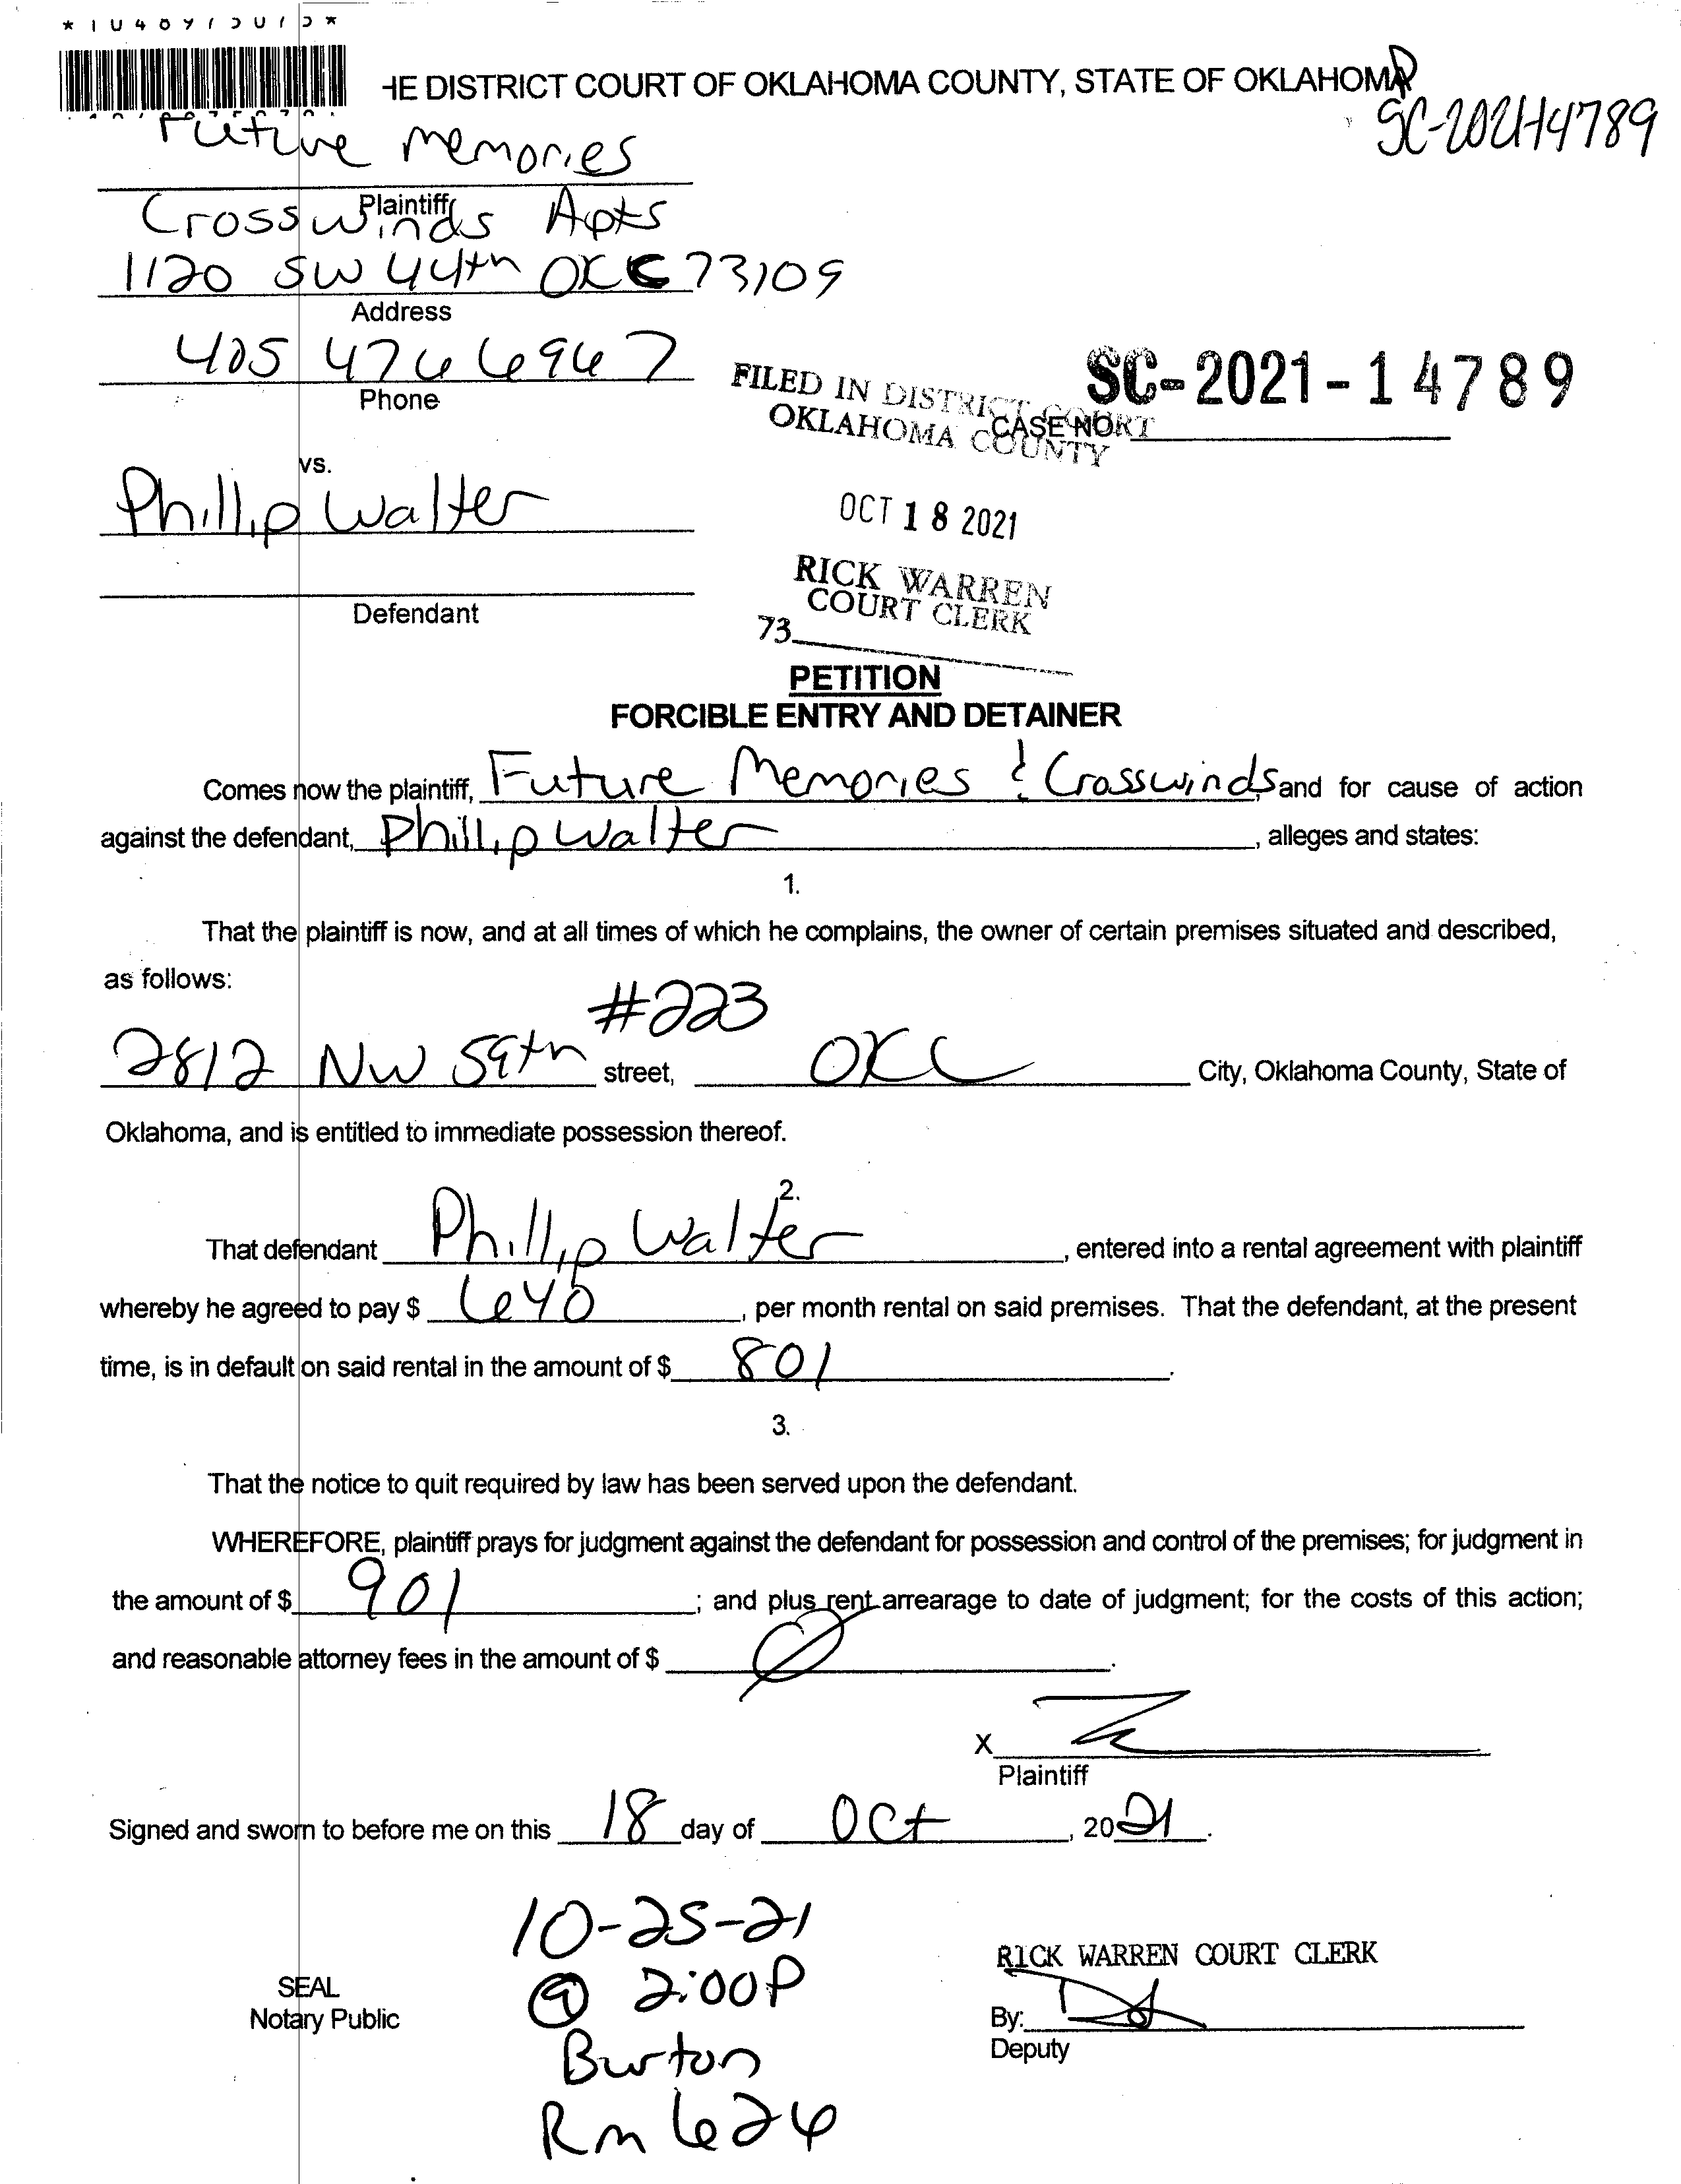 HE DISTRICT COURT OF OKLAHOMA COUNTY, STATE OF OKLAHOMA
SC-2021-14789
Future Memories
Plaintiff
Crosswinds Apts
1120 SW 44th OKC 73109
Address
405 476 6967
Phone
FILED IN DISTRICT COURT
OKLAHOMA COUNTY
SC-2021-14789
CASE NO.
vs.
Phillip Walter
OCT 18 2021
RICK WARREN
COURT CLERK
Defendant
73
PETITION
FORCIBLE ENTRY AND DETAINER
Comes now the plaintiff, Future Memories & Crosswinds, and for cause of action
against the defendant, Phillip Walter, alleges and states:
1.
That the plaintiff is now, and at all times of which he complains, the owner of certain premises situated and described,
as follows:
#223
2812 NW 59th street, OKC City, Oklahoma County, State of
Oklahoma, and is entitled to immediate possession thereof.
2.
That defendant Phillip Walter, entered into a rental agreement with plaintiff
whereby he agreed to pay $ 640, per month rental on said premises. That the defendant, at the present
time, is in default on said rental in the amount of $ 801.
3.
That the notice to quit required by law has been served upon the defendant.
WHEREFORE, plaintiff prays for judgment against the defendant for possession and control of the premises; for judgment in
the amount of $ 901; and plus rent arrearage to date of judgment; for the costs of this action;
and reasonable attorney fees in the amount of $ Ø.
X
Plaintiff
Signed and sworn to before me on this 18 day of Oct, 2021.
10-25-21
@ 2:00P
Burton
Rm 626
SEAL
Notary Public
RICK WARREN COURT CLERK
By:
Deputy